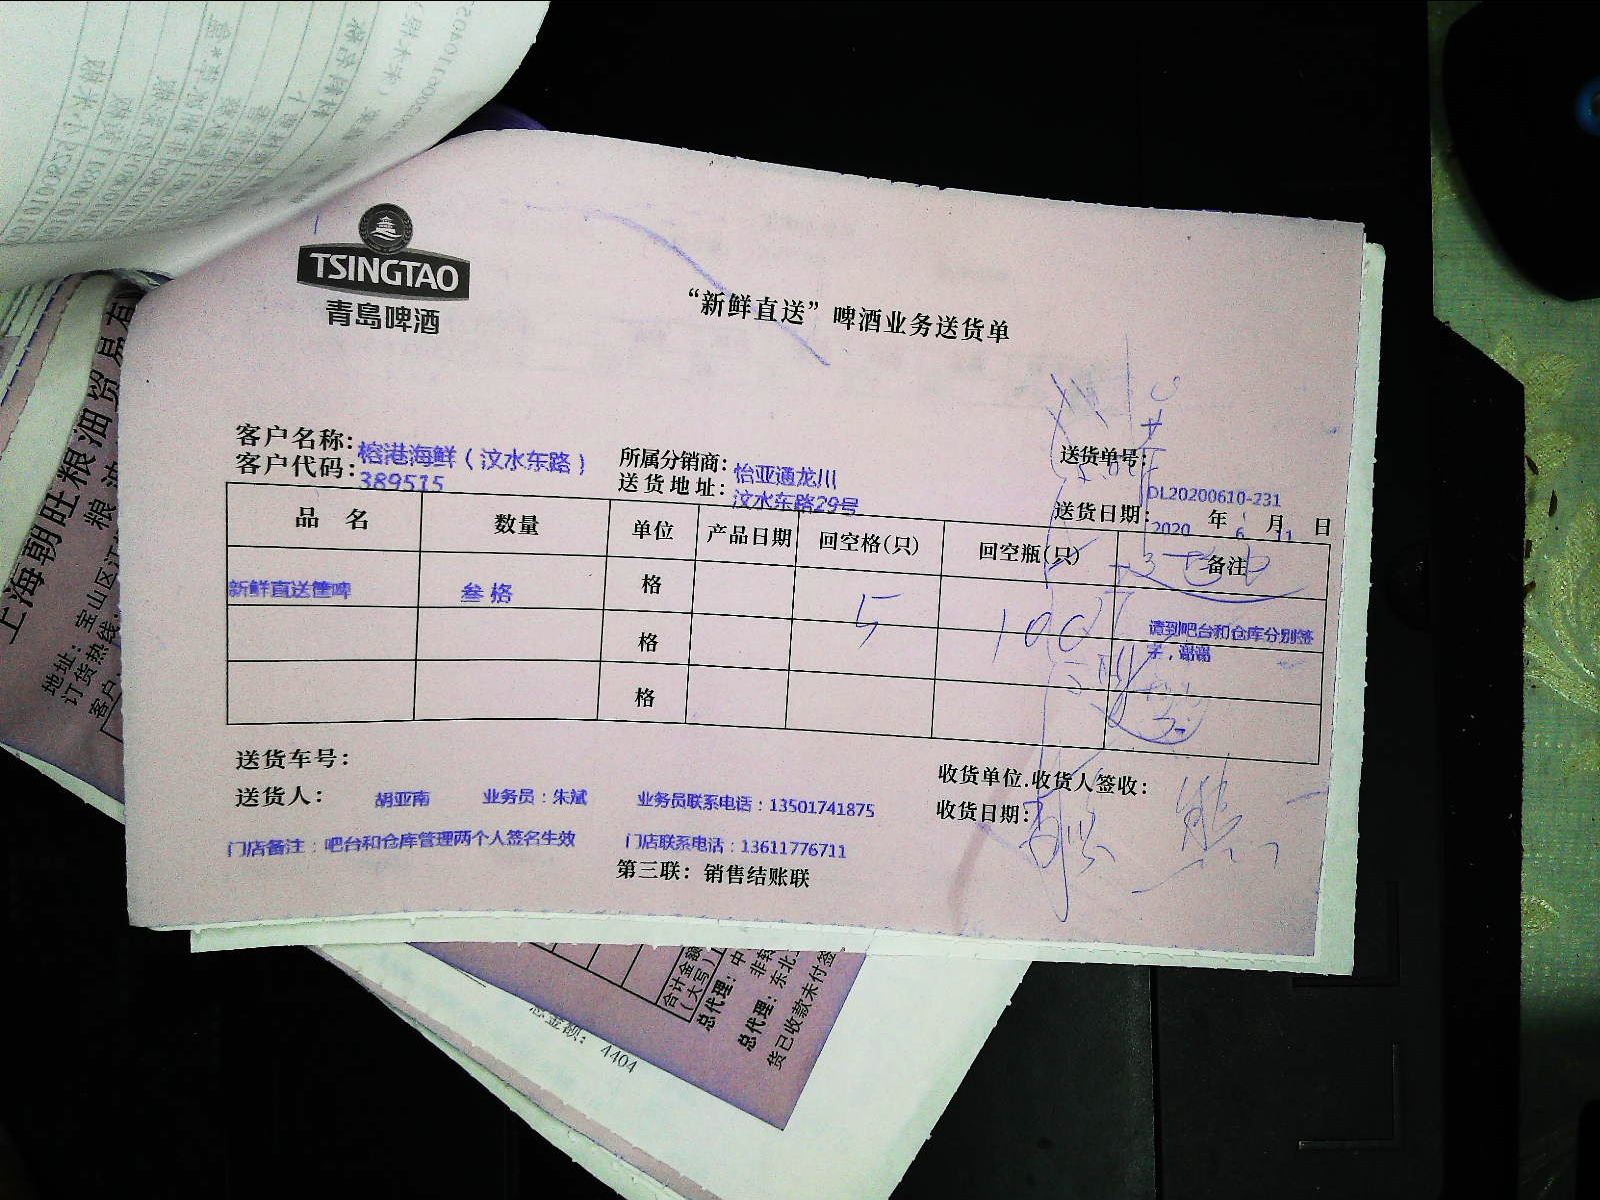 TSINGTAO
青島啤酒
“新鲜直送”啤酒业务送货单
客户名称：榕港海鲜（汶水东路）
客户代码：389515
所属分销商：怡亚通龙川
送货地址：汶水东路29号
送货单号：DL20200610-231
送货日期：2020年6月11日
品名 数量 单位 产品日期 回空格(只) 回空瓶(只) 备注
新鲜直送筐啤 叁格 格 5 100 请到吧台和仓库分别签字，谢谢
格
格
送货车号：
送货人：胡亚南 业务员：朱斌 业务员联系电话：13501741875
收货单位.收货人签收：
收货日期：
门店备注：吧台和仓库管理两个人签名生效 门店联系电话：13611776711
第三联：销售结账联
上海朝旺粮油贸易有
粮油
地址：宝山区江
订货热线：
客户
合计金额
（大写）
总代理：中
非转
总代理：东北
货已收款未付签
总金额：4404